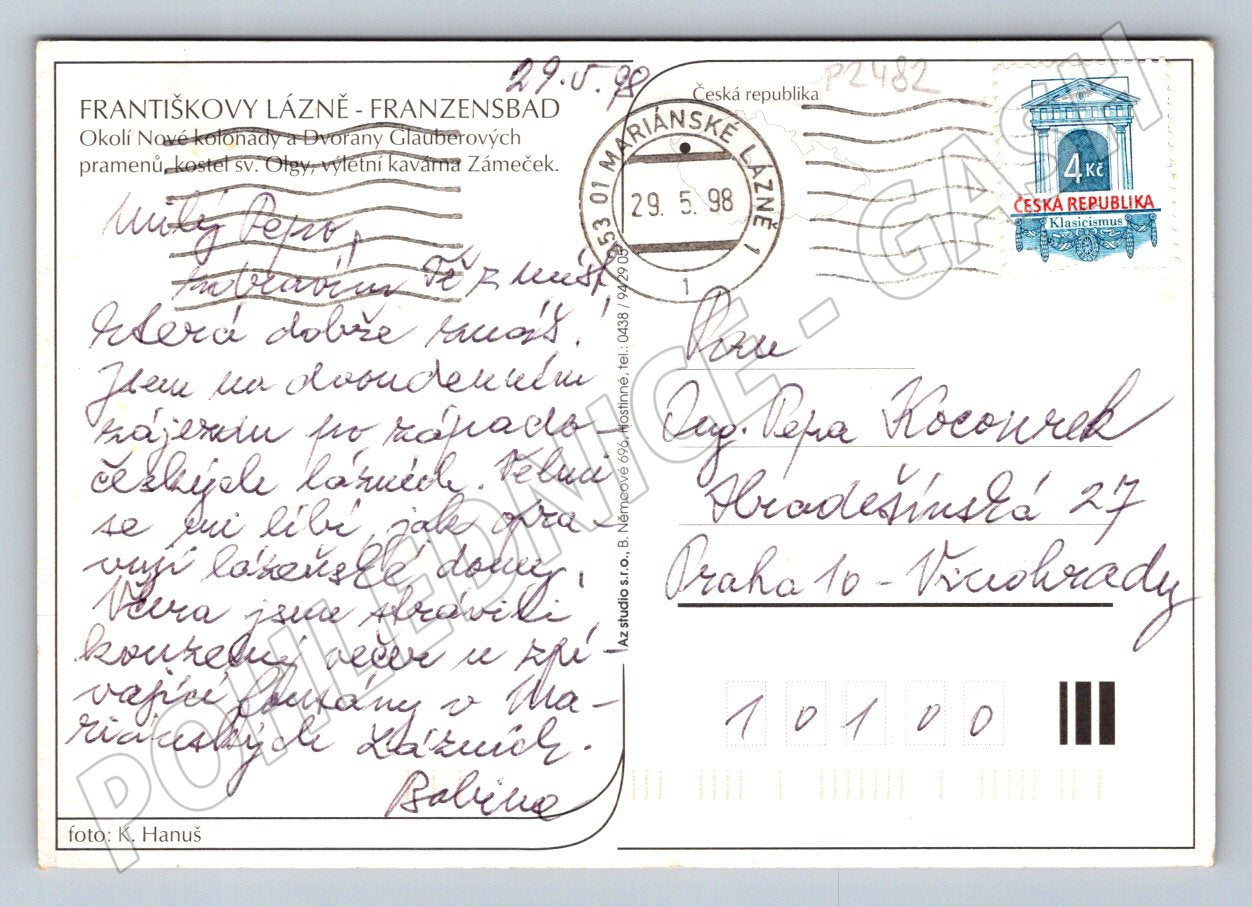 29.V.98
FRANTIŠKOVY LÁZNĚ - FRANZENSBAD
Okolí Nové kolonády a Dvorany Glauberových
pramenů, kostel sv. Olgy, výletní kavárna Zámeček.
Milý Pepo,
zdravím Tě z míst
která dobře znáš.
Jsem na dvoudenním
zájezdu po západo-
českých lázních. Velmi
se mi líbí, jak opra-
vují lázeňské domy.
Včera jsme strávili
kouzelný večer u zpí-
vající fontány v Ma-
riánských Lázních.
foto: K. Hanuš
Az studio s.r.o., B. Němcové 696, Hostinné, tel.: 0438 / 94 29 05
Česká republika
P2482
353 01 MARIÁNSKÉ LÁZNĚ 1
29. 5. 98
1
4 Kč
ČESKÁ REPUBLIKA
Klasicismus
Pan
Ing. Pepa Kocourek
Hradešínská 27
Praha 10 - Vinohrady
1 0 1 0 0
POHLEDNICE - GASH